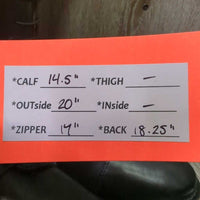 *CALF 14.5" *THIGH —
*OUTside 20" *INside —
*ZIPPER 17" *BACK 18.25"